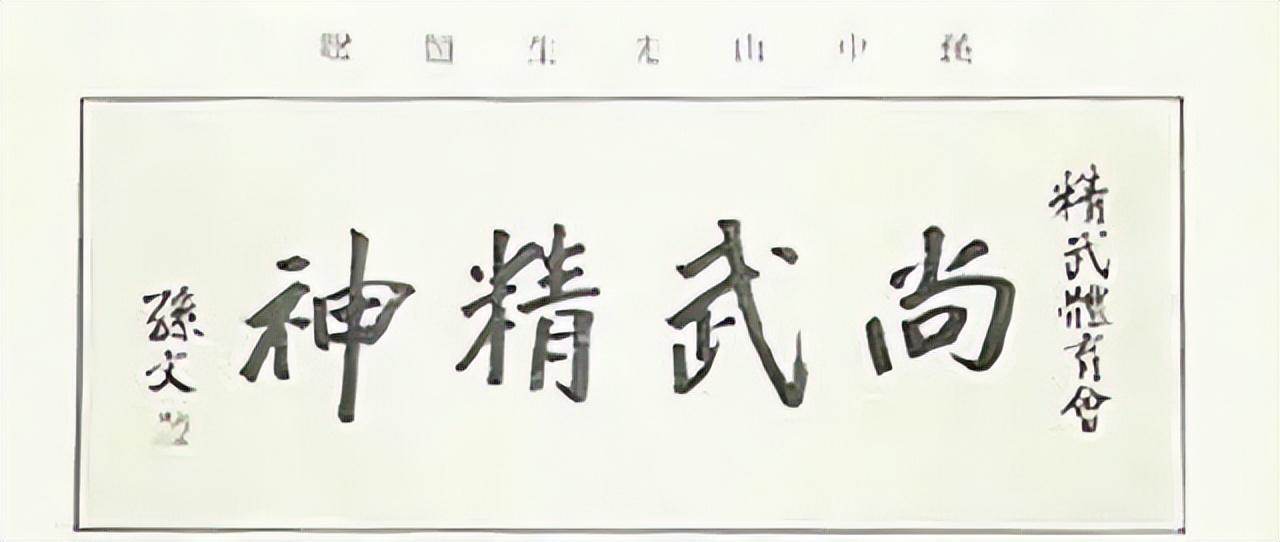 孫中山先生
精武體育會
尚武精神
孫文